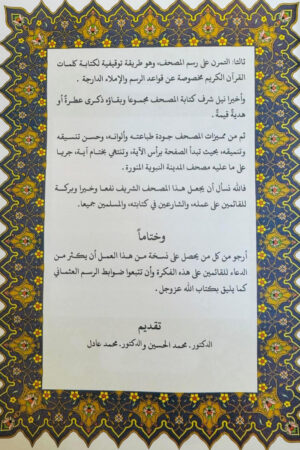 ثالثا: التمرن على رسم المصحف، وهو طريقة توقيفية لكتابة كلمات
القرآن الكريم مخصوصة عن قواعد الرسم والإملاء الدارجة .
وأخيرا نيل شرف كتابة المصحف مجموعا وبقاؤه ذكرى عطرةً أو
هديةً قيمةً .
ثم من مميزات المصحف جودة طباعته وألوانه، وحسن تنسيقه
وتنميقه، بحيث تبدأ الصفحة برأس الآية، وتنتهي بختام آية، جريا
على ما عليه مصحف المدينة النبوية المنورة .
فالله نسأل أن يجعل هذا المصحف الشريف نفعا وخيرا وبركة
للقائمين على عمله، والشارعين في كتابته، والمسلمين جميعا.
وختاماً
أرجو من كل من يحصل على نسخة من هذا العمل أن يكثر من
الدعاء للقائمين على هذه الفكرة وأن تتبعوا ضوابط الرسم العثماني
كما يليق بكتاب الله عزوجل .
تقديم
الدكتور. محمد الحسين والدكتور. محمد عادل